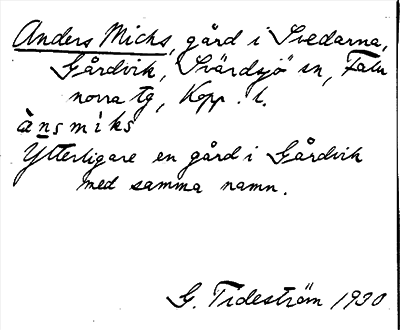 Anders Micks, gård i Svedarna,
Gårdvik, Svärdsjö sn, Falu
norra tg, Kopp. l.
ànsmìks
Ytterligare en gård i Gårdvik
med samma namn.
G. Tideström 1930